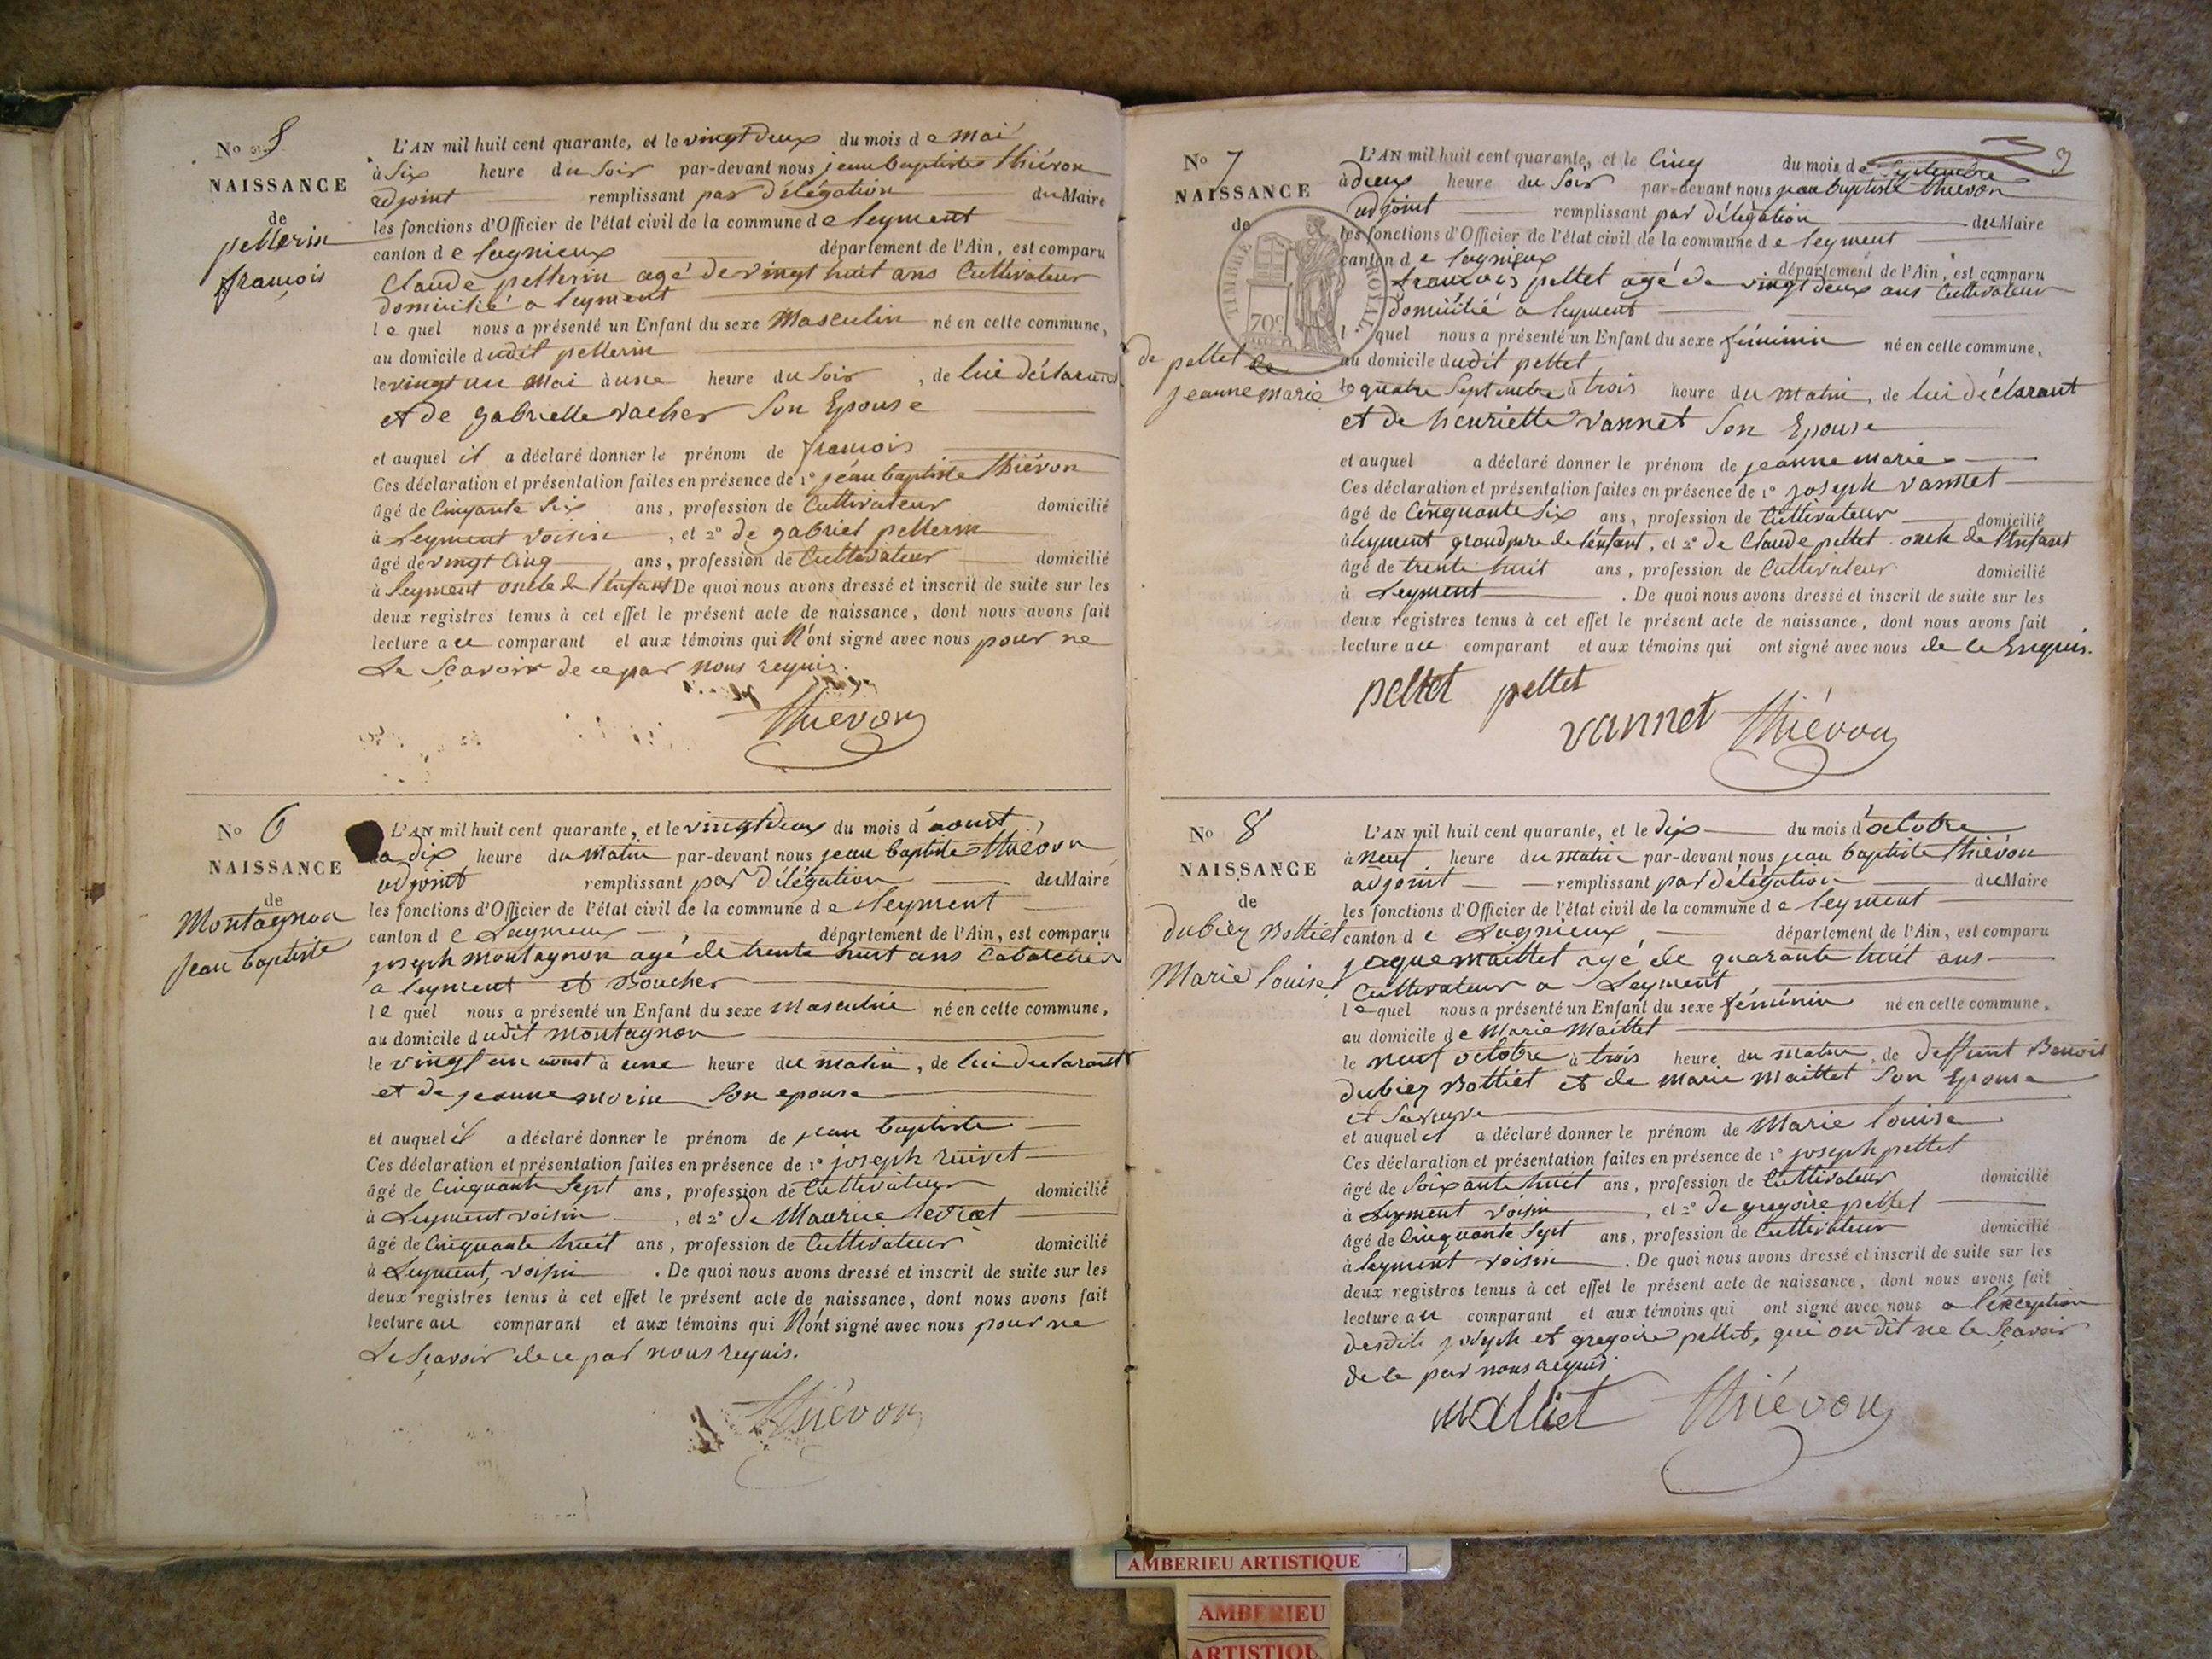 No 5
NAISSANCE
de
pellerin
françois
L'AN mil huit cent quarante, et le vingt deux du mois de Mai
à Six heure du Soir par-devant nous jean baptiste thiévon
adjoint remplissant par délégation du Maire
les fonctions d'Officier de l'état civil de la commune de leyment
canton de lagnieux département de l'Ain, est comparu
Claude pellerin agé de vingt huit ans Cultivateur
domicilié a leyment
le quel nous a présenté un Enfant du sexe Masculin né en cette commune,
au domicile dudit pellerin
le vingt un Mai à une heure du Soir, de lui déclarant
et de gabrielle vacher Son Epouse
et auquel il a déclaré donner le prénom de francois
Ces déclaration et présentation faites en présence de 1° jean baptiste thiévon
âgé de Cinquante Six ans, profession de Cultivateur domicilié
à Leyment voisin, et 2° de gabriel pellerin
âgé de vingt Cinq ans, profession de Cultivateur domicilié
à Leyment oncle de l'enfant De quoi nous avons dressé et inscrit de suite sur les
deux registres tenus à cet effet le présent acte de naissance, dont nous avons fait
lecture au comparant et aux témoins qui N'ont signé avec nous pour ne
Le Sçavoir de ce par nous requis.
thiévon
No 6
NAISSANCE
de
Montagnon
jean baptiste
L'AN mil huit cent quarante, et le vingt deux du mois d'aoust
a dix heure du Matin par-devant nous jean baptiste thiévon
adjoint remplissant par délégation du Maire
les fonctions d'Officier de l'état civil de la commune de leyment
canton de Lagnieux, département de l'Ain, est comparu
joseph montagnon agé de trente huit ans Cabaretier
a leyment et Boucher
le quel nous a présenté un Enfant du sexe Masculin né en cette commune,
au domicile dudit montagnon
le vingt un aoust à une heure du matin, de lui déclarant
et de jeanne morin Son epouse
et auquel il a déclaré donner le prénom de jean baptiste
Ces déclaration et présentation faites en présence de 1° joseph ruivet
âgé de Cinquante Sept ans, profession de Cultivateur domicilié
à Leyment voisin, et 2° de Maurice levrat
âgé de Cinquante huit ans, profession de Cultivateur domicilié
à Leyment, voisin. De quoi nous avons dressé et inscrit de suite sur les
deux registres tenus à cet effet le présent acte de naissance, dont nous avons fait
lecture au comparant et aux témoins qui N'ont signé avec nous pour ne
Le Sçavoir de ce par nous requis.
thiévon
3
No 7
NAISSANCE
de
de pellet
jeanne marie
TIMBRE ROYAL
70c
L'AN mil huit cent quarante, et le Cinq du mois de Septembre
à deux heure du Soir par-devant nous jean baptiste thiévon
adjoint remplissant par délégation du Maire
les fonctions d'Officier de l'état civil de la commune de leyment
canton de lagnieux département de l'Ain, est comparu
francois pellet agé de vingt deux ans Cultivateur
domicilié a leyment
l quel nous a présenté un Enfant du sexe féminin né en cette commune,
au domicile dudit pellet
le quatre Septembre à trois heure du matin, de lui déclarant
et de henriette vannet Son Epouse
et auquel a déclaré donner le prénom de jeanne marie
Ces déclaration et présentation faites en présence de 1° joseph vannet
âgé de Cinquante Six ans, profession de Cultivateur domicilié
à leyment grandpere de l'enfant, et 2° de Claude pellet oncle de l'Enfant
âgé de trente huit ans, profession de Cultivateur domicilié
à Leyment. De quoi nous avons dressé et inscrit de suite sur les
deux registres tenus à cet effet le présent acte de naissance, dont nous avons fait
lecture au comparant et aux témoins qui ont signé avec nous de ce Enquis.
pellet pellet
vannet thiévon
No 8
NAISSANCE
de
dubiez Bottiet
Marie louise
L'AN mil huit cent quarante, et le dix du mois d'octobre
à Neuf heure du matin par-devant nous jean baptiste thiévon
adjoint remplissant par délégation du Maire
les fonctions d'Officier de l'état civil de la commune de leyment
canton de Lagnieux, département de l'Ain, est comparu
jaque maillet agé de quarante huit ans
Cultivateur a Leyment
le quel nous a présenté un Enfant du sexe féminin né en cette commune,
au domicile de Marie Maillet
le neuf octobre à trois heure du matin, de deffunt Benoit
dubiez Bottiet et de Marie Maillet Son Epouse
et Sa veuve
et auquel il a déclaré donner le prénom de Marie louise
Ces déclaration et présentation faites en présence de 1° joseph pellet
âgé de Soixante huit ans, profession de Cultivateur domicilié
à Leyment voisin, et 2° de gregoire pellet
âgé de Cinquante Sept ans, profession de Cultivateur domicilié
à leyment voisin. De quoi nous avons dressé et inscrit de suite sur les
deux registres tenus à cet effet le présent acte de naissance, dont nous avons fait
lecture au comparant et aux témoins qui ont signé avec nous a l'exception
desdits joseph et gregoire pellet, qui on dit ne le Sçavoir
de ce par nous requis.
malliet thiévon
AMBERIEU ARTISTIQUE
AMBERIEU
ARTISTIQU